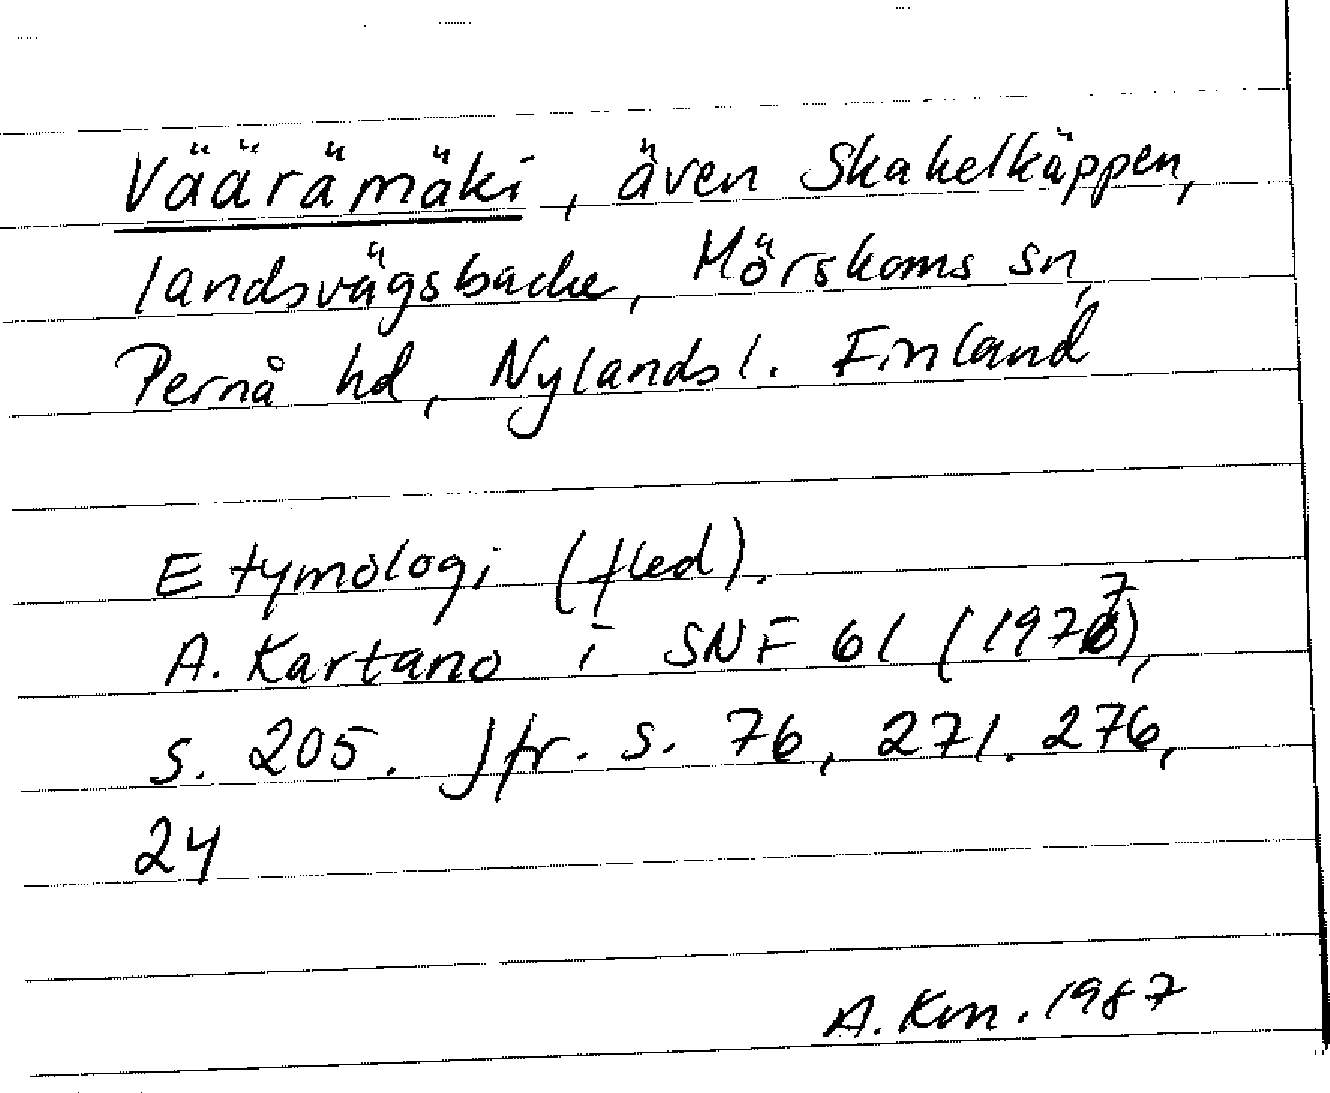 Väärämäki, även Skakelkäppen,
landsvägsbacke, Mörskoms sn,
Pernå hd, Nylands l. Finland
Etymologi (fled).
A. Kartano i SNF 61 (1977),
s. 205. Jfr. s. 76, 271. 276,
24
A. Km. 1987